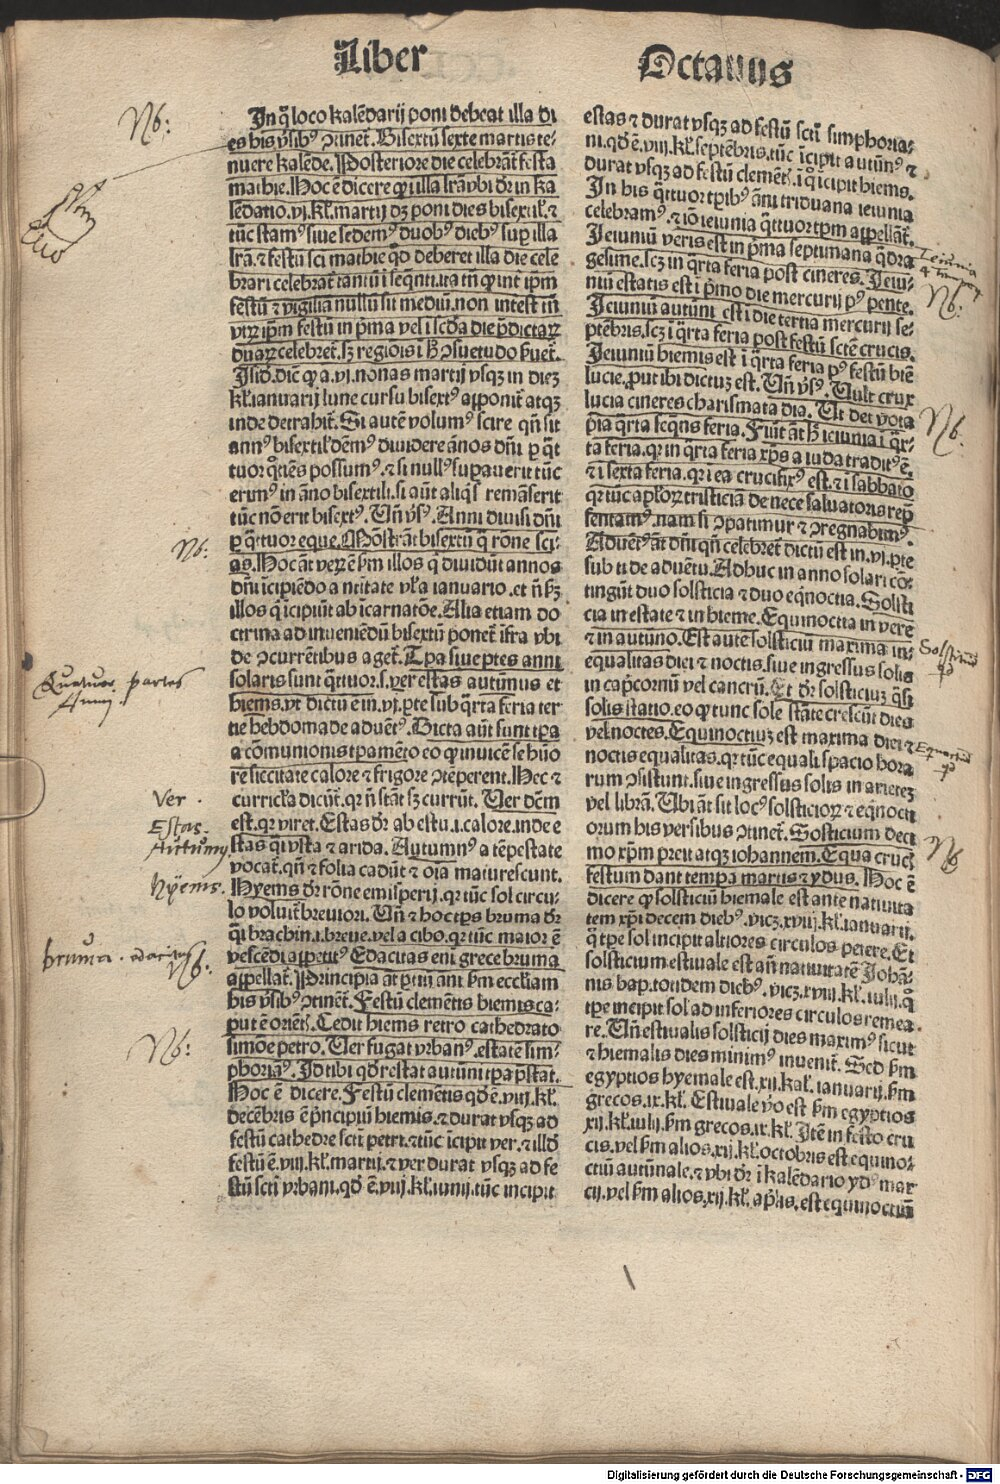 Liber Octauus
Nb:
In q̊ loco kalēdarij poni debeat illa di
es his v̓sibꝰ ꝯtinet᷑. Bisextū sexte martis te-
nuere kalēde. Posteriore die celebrāt᷑ festa
mathie. Hoc ē dicere ꝙ i illa l̓ra vbi d̓r in ka
lēdario .vj. kl̓. martij dꝫ poni dies bisextil̓. ⁊
tūc stamꝰ siue sedemꝰ duobꝰ diebꝰ sup̱ illa
l̓ra. ⁊ festū sci mathie qd̓ deberet illa die cele
brari celebrat᷑ tantū i seqn̄ti. ita tn̄ ꝙ int̓ ip̄m
festū ⁊ vigiliā nullū sit mediū. non intest in̄
vtrꝫ ip̄m festū in p̓ma vel i sc̄da die p̄dictaꝝ
duaꝝ celebret᷑. sꝫ regiōis i h̓ ꝯsuetudo ẜuet᷑.
Isid̓. dic̄ ꝙ a .vj. nonas martij vsqꝫ in diez
kl̓. ianuarij lune cursu bisextꝰ apponit᷑ atqꝫ
inde detrahit᷑. Si autē volumꝰ scire qn̄ sit
annꝰ bisextil̓ dēmꝰ diuidere ānos dn̄i ꝑ q̓t
tuor q̊tiēs possumꝰ. ⁊ si nullꝰ sup̱auerit tūc
erimꝰ in āno bisextili. si aūt aliq̓s remāserit
tūc nō erit bisextꝰ. Vn̄ v̓sꝰ. Anni diuisi dn̄i
ꝑ q̓ttuor eque. Mōstrāt bisextū q̓ rōne sci-
Nb:
as. Hoc āt verꝫ ē ẜm illos q̓ diuidūt annos
dn̄i īcipiēdo a natiuitate vl̓ a ianuario. et n̄ ẜꝫ
illos q̓ īcipiūt ab īcarnatōe. Alia etiam do
ctrina ad inueniēdū bisextū ponet᷑ ifra vbi
de ꝯcurrētibus aget᷑. Tp̱a siue ptes anni
solaris sunt q̓ttuor .s. ver estas autūnus et
Quatuor partes
Anni
hiems. vt dictū ē in .vj. ꝑte sub q̓rta feria ter
tie hebdomade aduētꝰ. Dicta aūt sunt tp̱a
a cōmunionis tp̱amēto eo ꝙ inuicē se hūo
re siccitate calore ⁊ frigore ꝯtēperent. Hec ⁊
Ver.
curricl̓a dicūt᷑. qꝛ n̄ stāt sꝫ currūt. Ver dc̄m
Estas.
est. qꝛ viret. Estas d̓r ab estu .i. calore. inde e
Autumnus
stas q̓i vsta ⁊ arida. Autumnꝰ a tēpestate
vocat᷑. qn̄ ⁊ folia cadūt ⁊ oīa maturescunt.
Hyems.
Hyems d̓r rōne emisperij. qꝛ tūc sol circu-
lo voluit᷑ breuiori. Vn̄ ⁊ hoc tp̱s bruma d̓r
q̓i brachin .i. breue. vel a cibo. qꝛ tūc maior ē
bruma. edacitas
Nb:
vescēdi appetitꝰ. Edacitas eni grece bruma
appellat᷑. Principia āt ꝑtiū anī ẜm eccl̓iam
his v̓sibꝰ ꝯtinet᷑. Festū clemētis hiemis ca-
put ē oriēt̓. Cedit hiems retro cathedrato
Nb:
simōe petro. Ver fugat vrbanꝰ. estatē sim-
phorianꝰ. Id tibi qd̓ restat autūni tp̱a p̄stat.
Hoc ē dicere. Festū clemētis qd̓ ē .viij. kl̓.
decēbris ē p̓ncipiū hiemis. ⁊ durat vsqꝫ ad
festū cathedre scti petri. ⁊ tūc īcipit ver. ⁊ illd̓
festū ē .viij. kl̓. martij. ⁊ ver durat vsqꝫ ad fe
stū scti vrbani. qd̓ ē .viij. kl̓. iunij. tūc incipit
estas ⁊ durat vsqꝫ ad festū scti simphoria-
ni. qd̓ ē .viij. kl̓. septēbris. tūc īcipit autūnꝰ ⁊
durat vsqꝫ ad festū clemēt̓. i q̊ īcipit hiems.
In his q̓ttuor tp̱ibꝰ āni triduana ieiunia
celebramꝰ. ⁊ iō ieiunia q̓ttuor tp̱m appellāt᷑.
Ieiuniū veris est in p̓ma septimana q̓dra
Ieiunia
gesime. scꝫ in q̓rta feria post cineres. Ieiu-
Nb:
niū estatis est i p̓mo die mercurij pꝰ pente.
Ieiuniū autūni est i die tertia mercurij se-
ptēbris. scꝫ i q̓rta feria post festū sctē crucis.
Ieiuniū hiemis est i q̓rta feria pꝰ festū btē
lucie. put ibi dictuꝫ est. Vn̄ v̓sꝰ. Vult crux
Nb.
lucia cineres charismata dia. Vt det vota
p̓ia q̓rta seqn̄s feria. Fiūt āt h̓ ieiunia i q̓r-
ta feria. qꝛ in q̓rta feria xp̄s a iuda traditꝰ ē.
⁊ i sexta feria. qꝛ i ea crucifixꝰ est. ⁊ i sabbato
qꝛ tūc apl̓oꝝ tristiciā de nece saluatoris rep̄
sentamꝰ. nam si ꝯpatimur ⁊ ꝯregnabimꝰ.
Aduētꝰ āt dn̄i qn̄ celebret᷑ dictū est in .vj. pte
sub ti de aduētu. Adhuc in anno solari cō-
tingūt duo solsticia ⁊ duo eq̓noctia. Solsti
cia in estate ⁊ in hieme. Equinoctia in vere
Solsticium
⁊ in autūno. Est autē solsticiū maxima in-
equalitas diei ⁊ noctis. siue ingressus solis
in cap̓cornū vel cancrū. Et d̓r solsticiuꝫ q̓si
solis statio. eo ꝙ tunc sole stāte crescūt dies
vel noctes. Equinoctiuꝫ est maxima diei ⁊
Equinoctium
noctis equalitas. qꝛ tūc equali spacio hora
rum ꝯsistunt. siue ingressus solis in arietez
vel librā. Vbi āt sit locꝰ solsticioꝝ ⁊ eq̓nocti
orum his versibus ꝯtinet᷑. Solsticium deci
Nb
mo xp̄m preit atqꝫ iohannem. Equa cruc̓
festum dant tempa martis ⁊ ydus. Hoc ē
dicere ꝙ solsticiū hiemale est ante natiuita
tem xp̄i decem diebꝰ. vicꝫ .xviij. kl̓. ianuarij.
q̊ tp̱e sol incipit altiores circulos petere. Et
solsticium estiuale est an̄ natiuitatē Johā-
nis bap. totidem diebꝰ. vicꝫ .xviij. kl̓. iulij. q̊
tp̱e incipit sol ad inferiores circulos remea-
re. Vn̄ estiualis solsticij dies maximꝰ sicut
⁊ hiemalis dies minimꝰ inuenit᷑. Sed ẜm
egyptios hyemale est .xij. kal̓. ianuarij. ẜm
grecos .ix. kl̓. Estiuale v̓o est ẜm egyptios
.xij. kl̓. iulij. ẜm grecos .ix. kl̓. Itē in festo cru
cis. vel ẜm alios .xij. kl̓. octobris est equino-
ctiū autūnale. ⁊ vbi d̓r i kalēdario ydꝰ mar
cij. vel ẜm alios .xij. kl̓. ap̓lis. est equinoctiū
Digitalisierung gefördert durch die Deutsche Forschungsgemeinschaft - DFG